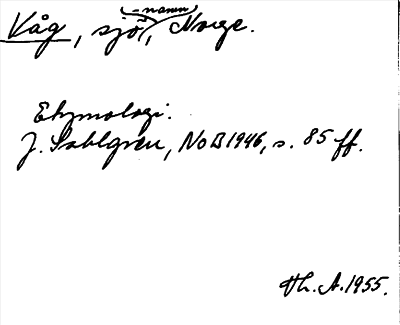 Våg, sjö-namn, Norge.
Etymologi.
J. Sahlgren, NoB 1946, s. 85 ff.
Th. A. 1955.